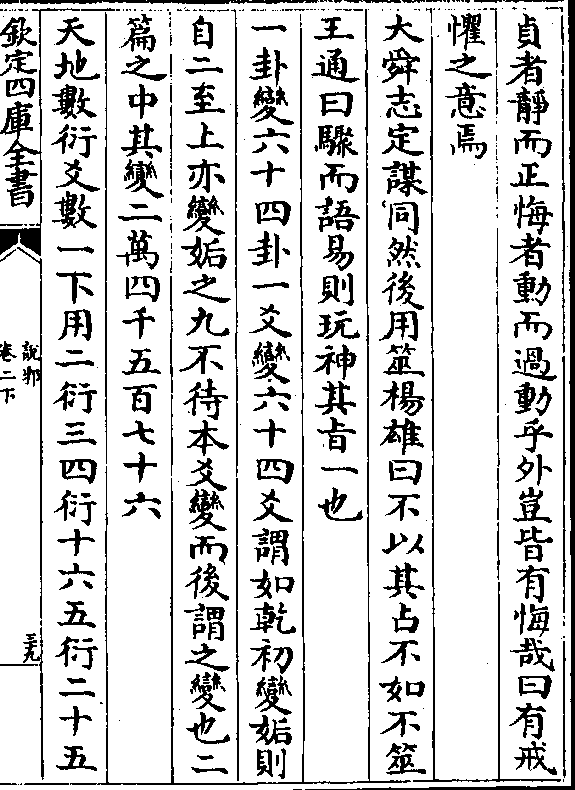 貞者靜而正悔者動而過動乎外豈皆有悔哉曰有戒
懼之意焉
大舜志定謀同然後用筮楊雄曰不以其占不如不筮
王通曰驟而語易則玩神其旨一也
一卦變六十四卦一爻變六十四爻謂如乾初變姤則
自二至上亦變姤之九不待本爻變而後謂之變也二
篇之中其變二萬四千五百七十六
天地數衍爻數一下用二衍三四衍十六五衍二十五
欽定四庫全書
說郛
卷二下
三九